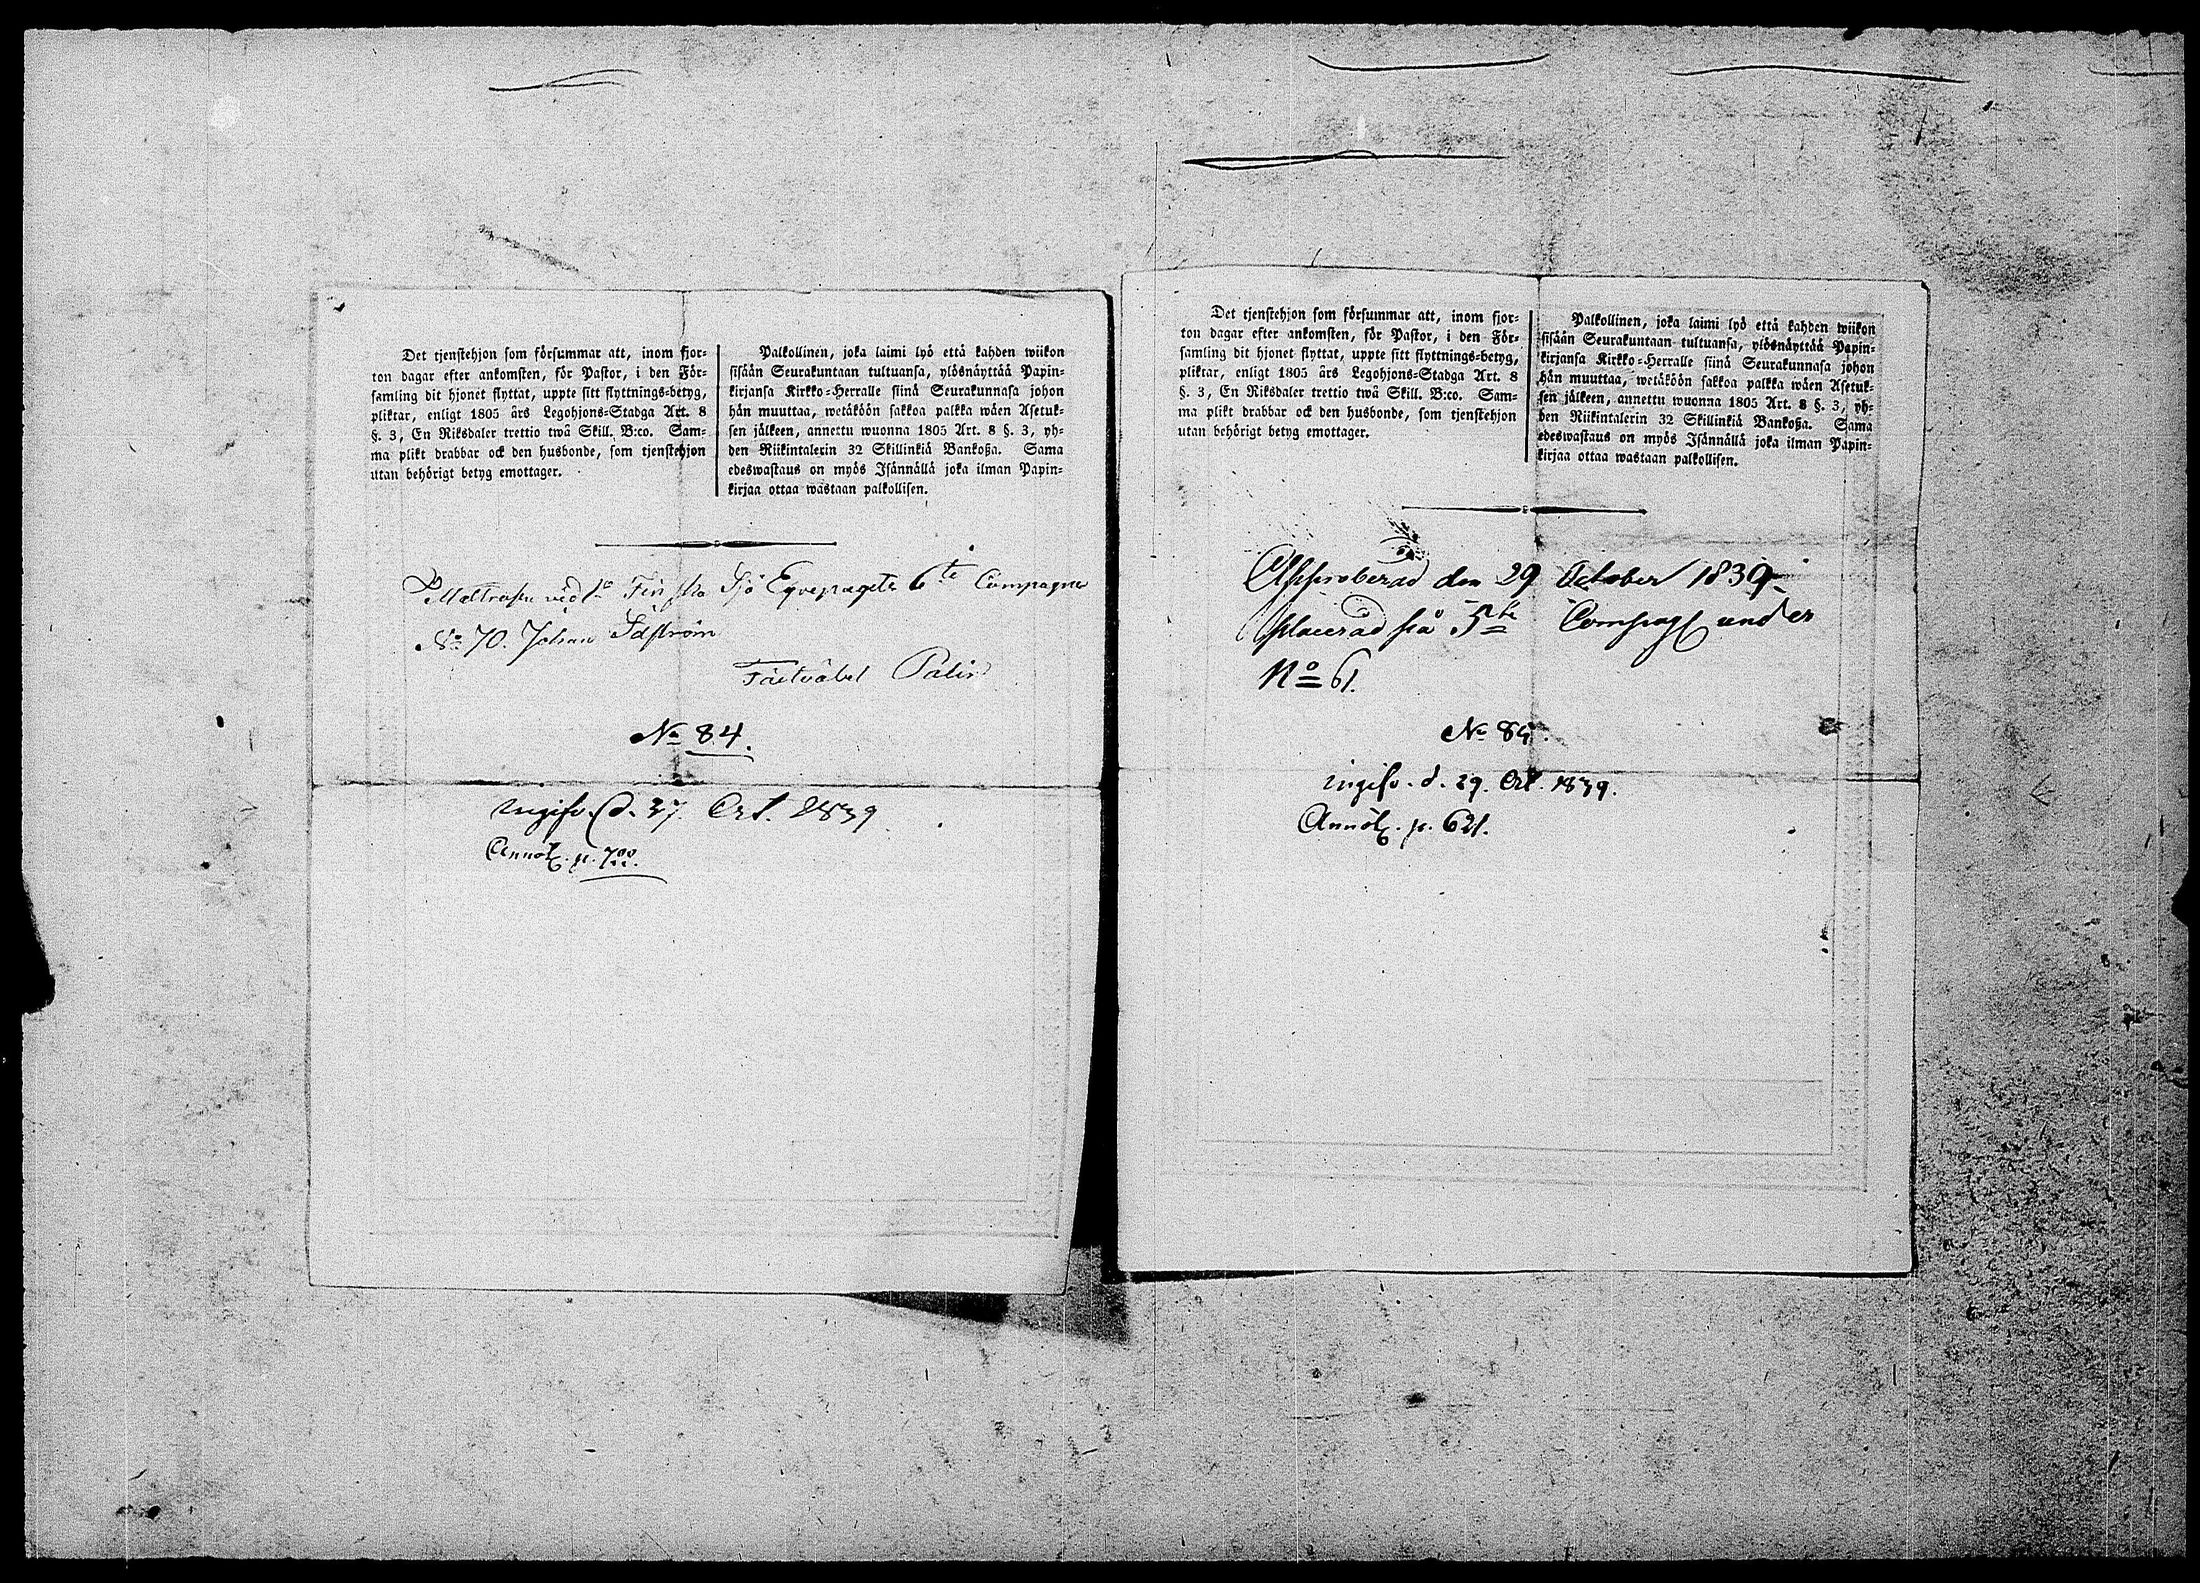 Det tjenstehjon som försummar att, inom fjor-
ton dagar efter ankomsten, för Pastor, i den För-
samling dit hjonet flyttat, uppte sitt flyttnings-betyg,
pliktar, enligt 1805 års Legohjons-Stadga Art. 8
§. 3, En Riksdaler trettio twå Skill. B:co. Sam-
ma plikt drabbar ock den husbonde, som tjenstehjon
utan behörigt betyg emottager.
Palkollinen, joka laimi lyö että kahden wiikon
sisään Seurakuntaan tultuansa, ylösnäyttää Papin-
kirjansa Kirkko-Herralle siinä Seurakunnasa johon
hän muuttaa, wetäköön sakkoa palkka wäen Asetuk-
sen jälkeen, annettu wuonna 1805 Art. 8 §. 3, yh-
den Riikintalerin 32 Skillinkiä Bankoßa. Sama
edeswastaus on myös Isännällä joka ilman Papin-
kirjaa ottaa wastaan palkollisen.
Mattrosen vid 1a Finska Sjö Eqvepagets 6te Compagnie
No 70. Johan Sdström
Fältväbel Palin
No 84.
ingifv. d. 27. Oct. 1839
Annot. p. 700.
Det tjenstehjon som försummar att, inom fjor-
ton dagar efter ankomsten, för Pastor, i den För-
samling dit hjonet flyttat, uppte sitt flyttnings-betyg,
pliktar, enligt 1805 års Legohjons-Stadga Art. 8
§. 3, En Riksdaler trettio twå Skill. B:co. Sam-
ma plikt drabbar ock den husbonde, som tjenstehjon
utan behörigt betyg emottager.
Palkollinen, joka laimi lyö että kahden wiikon
sisään Seurakuntaan tultuansa, ylösnäyttää Papin-
kirjansa Kirkko-Herralle siinä Seurakunnasa johon
hän muuttaa, wetäköön sakkoa palkka wäen Asetuk-
sen jälkeen, annettu wuonna 1805 Art. 8 §. 3, yh-
den Riikintalerin 32 Skillinkiä Bankoßa. Sama
edeswastaus on myös Isännällä joka ilman Papin-
kirjaa ottaa wastaan palkollisen.
Approberad den 29 October 1839
placerad på 5te Compag under
No 61.
No 85.
ingifv. d. 29. Oct. 1839.
Annot. p. 621.